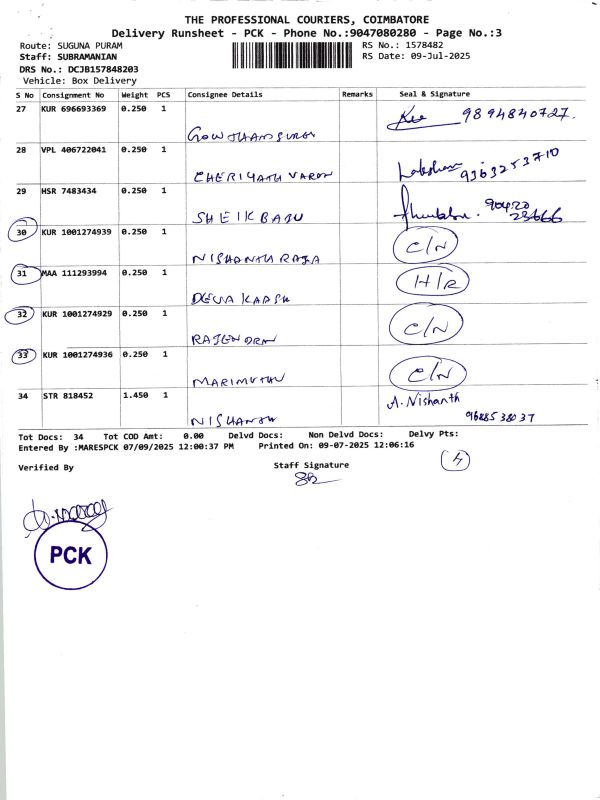 THE PROFESSIONAL COURIERS, COIMBATORE
Delivery Runsheet - PCK - Phone No.:9047080280 - Page No.:3
Route: SUGUNA PURAM RS No.: 1578482
Staff: SUBRAMANIAN RS Date: 09-Jul-2025
DRS No.: DCJB157848203
Vehicle: Box Delivery
S No Consignment No Weight PCS Consignee Details Remarks Seal & Signature
27 KUR 696693369 0.250 1 9894840727.
28 VPL 406722041 0.250 1 Lakshan 9363253710
CHERIYATH VARON
29 HSR 7483434 0.250 1 90420
SHEIK BABU 23666
30 KUR 1001274939 0.250 1 C/N
NISHANTH RAJA
31 MAA 111293994 0.250 1 H/R
DEVA
32 KUR 1001274929 0.250 1 C/N
RAJENDRAN
33 KUR 1001274936 0.250 1 C/N
MARIMUTHU
34 STR 818452 1.450 1 A. Nishanth
NISHANTH 9688538037
Tot Docs: 34 Tot COD Amt: 0.00 Delvd Docs: Non Delvd Docs: Delvy Pts:
Entered By :MARESPCK 07/09/2025 12:00:37 PM Printed On: 09-07-2025 12:06:16
Verified By Staff Signature 4
PCK